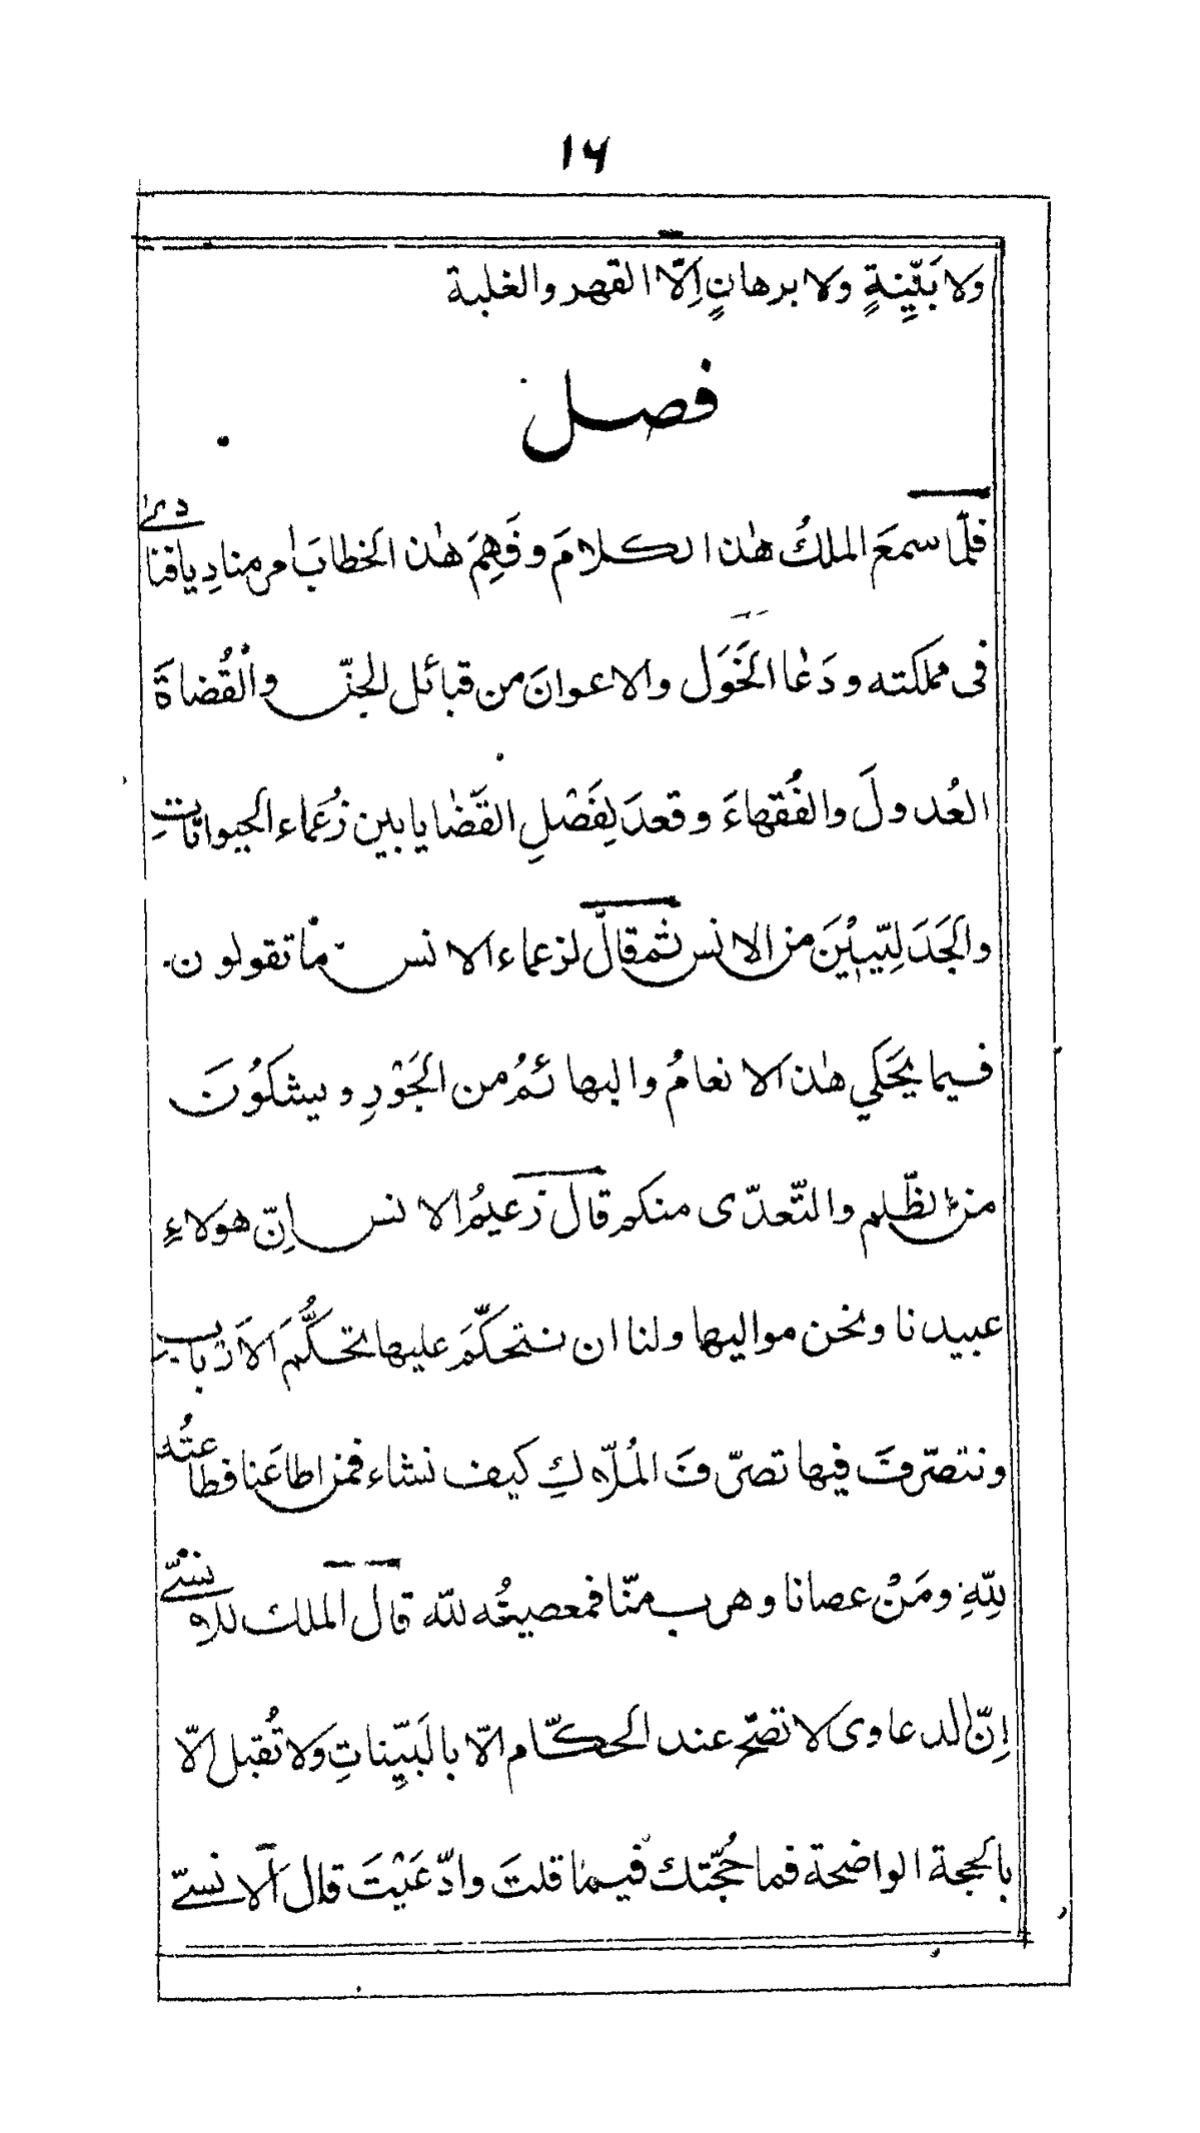 ١٦
ولا بَيِّنةٍ ولا برهانٍ اِلّا القهر والغلبة
فصل
فلمّا سمعَ الملكُ هٰذا الكلامَ وفَهِمَ هٰذا الخطابَ امر منادِيا فنادىٰ
فى مملكته ودَعَا الخَوَل والاعوانَ من قبائل الجنّ والْقُضاةَ
العُدولَ والفُقهاءَ وقعدَ لِفَصْلِ القَضايا بين زُعَماء الحيواناتِ
والجَدَلِيّيْنَ من الانس ثم قال لزعماء الانس ما تقولون
فيما يَحْكي هٰذه الانعامُ والبهائمُ من الجَوْرِ ويشكُونَ
من الظّلم والتّعدّى منكم قال زَعيمُ الانس اِنّ هولاءِ
عبيدنا ونحن مواليها ولنا ان نتحكّمَ عليها تحكُّمَ الاَربابِ
ونتصرّفَ فيها تصرّفَ المُلّاكِ كيف نشاء فمن اطاعَنا فطاعتُه
لِلّهِ ومَنْ عصانا وهرب منّا فمعصيتُه للّه قال الملك للانسىّ
اِنّ الدعاوى لا تصحّ عند الحكّام الّا بالبَيِّناتِ ولا تُقبل الّا
بالحجة الواضحة فما حُجّتك فيما قلتَ وادّعَيْتَ قال الانسىّ